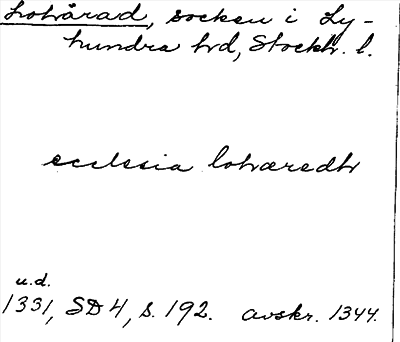 Lohärad, socken i Ly-
hundra hd, Stockh. l.
ecclesia lohæredh
u.d.
1331, SD 4, s. 192. avskr. 1344.